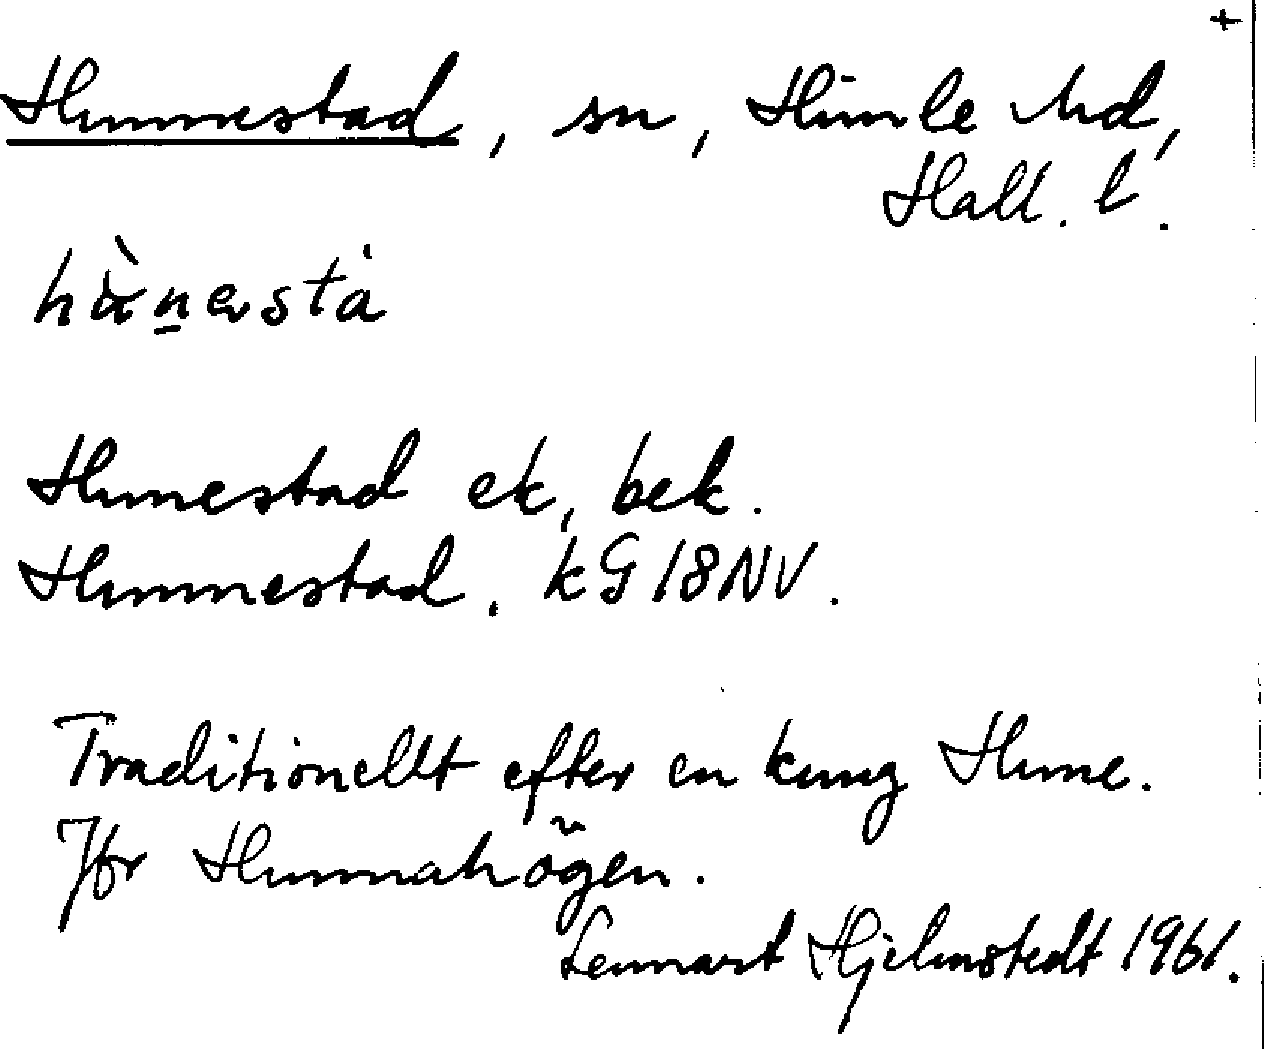 +
Hunnestad, sn, Himle hd,
Hall. l.
hὰn̲està
Hunestad ek, bek.
Hunnestad. kG 18 NV.
Traditionellt efter en kung Hune.
Jfr Hunnahögen.
Lennart Hjelmstedt 1961.